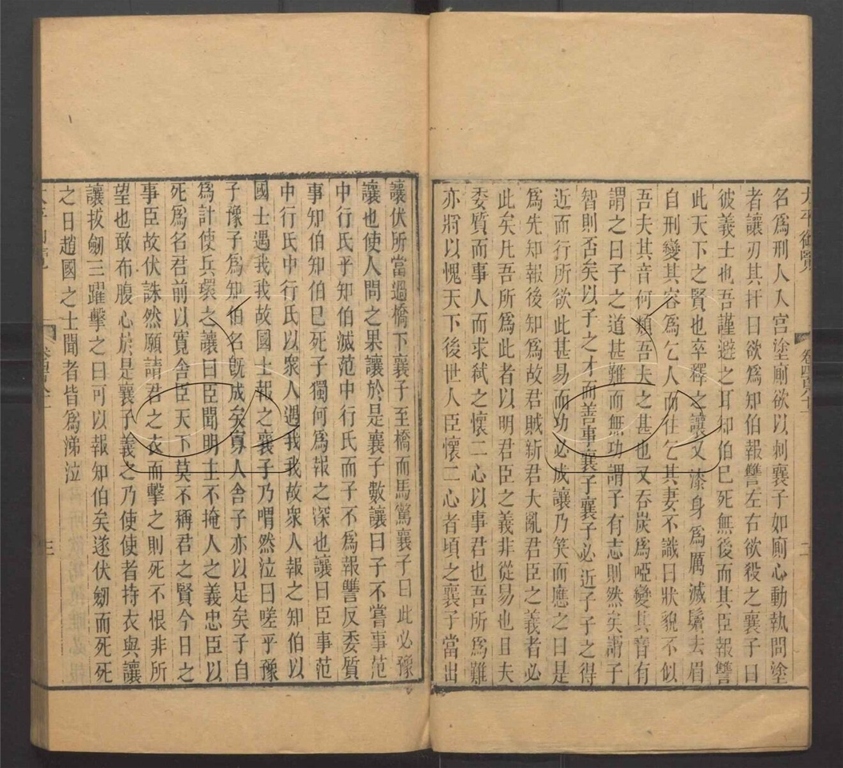 太平御覽
卷四百八十一
二
名爲刑人入宫塗廁欲以刺襄子如廁心動執問塗
者讓刃其扞曰欲爲知伯報讐左右欲殺之襄子曰
彼義士也吾謹避之耳知伯已死無後而其臣報讐
此天下之賢也卒釋之讓又漆身爲厲滅鬚去眉
自刑變其容爲乞人而往乞其妻不識曰狀貌不似
吾夫其音何類吾夫之甚也又吞炭爲啞變其音有
謂之曰子之道甚難而無功謂子有志則然矣謂子
智則否矣以子之才而善事襄子襄子必近子子之得
近而行所欲此甚易而功必成讓乃笑而應之曰是
爲先知報後知爲故君賊新君大亂君臣之義者必
此矣凡吾所爲此者以明君臣之義非從易也且夫
委質而事人而求弑之懷二心以事君也吾所爲難
亦將以愧天下後世人臣懷二心者頃之襄子當出
讓伏所當過橋下襄子至橋而馬驚襄子曰此必豫
讓也使人問之果讓於是襄子數讓曰子不嘗事范
中行氏乎知伯滅范中行氏而子不爲報讐反委質
事知伯知伯已死子獨何爲報之深也讓曰臣事范
中行氏中行氏以衆人遇我我故衆人報之知伯以
國士遇我我故國士報之襄子乃喟然泣曰嗟乎豫
子豫子爲知伯名旣成矣寡人舍子亦以足矣子自
爲計使兵環之讓曰臣聞明主不掩人之義忠臣以
死爲名君前以寛舍臣天下莫不稱君之賢今日之
事臣故伏誅然願請君之衣而擊之則死不恨非所
望也敢布腹心於是襄子義之乃使使者持衣與讓
讓拔劒三躍擊之曰可以報知伯矣遂伏劒而死死
之日趙國之士聞者皆爲涕泣
三